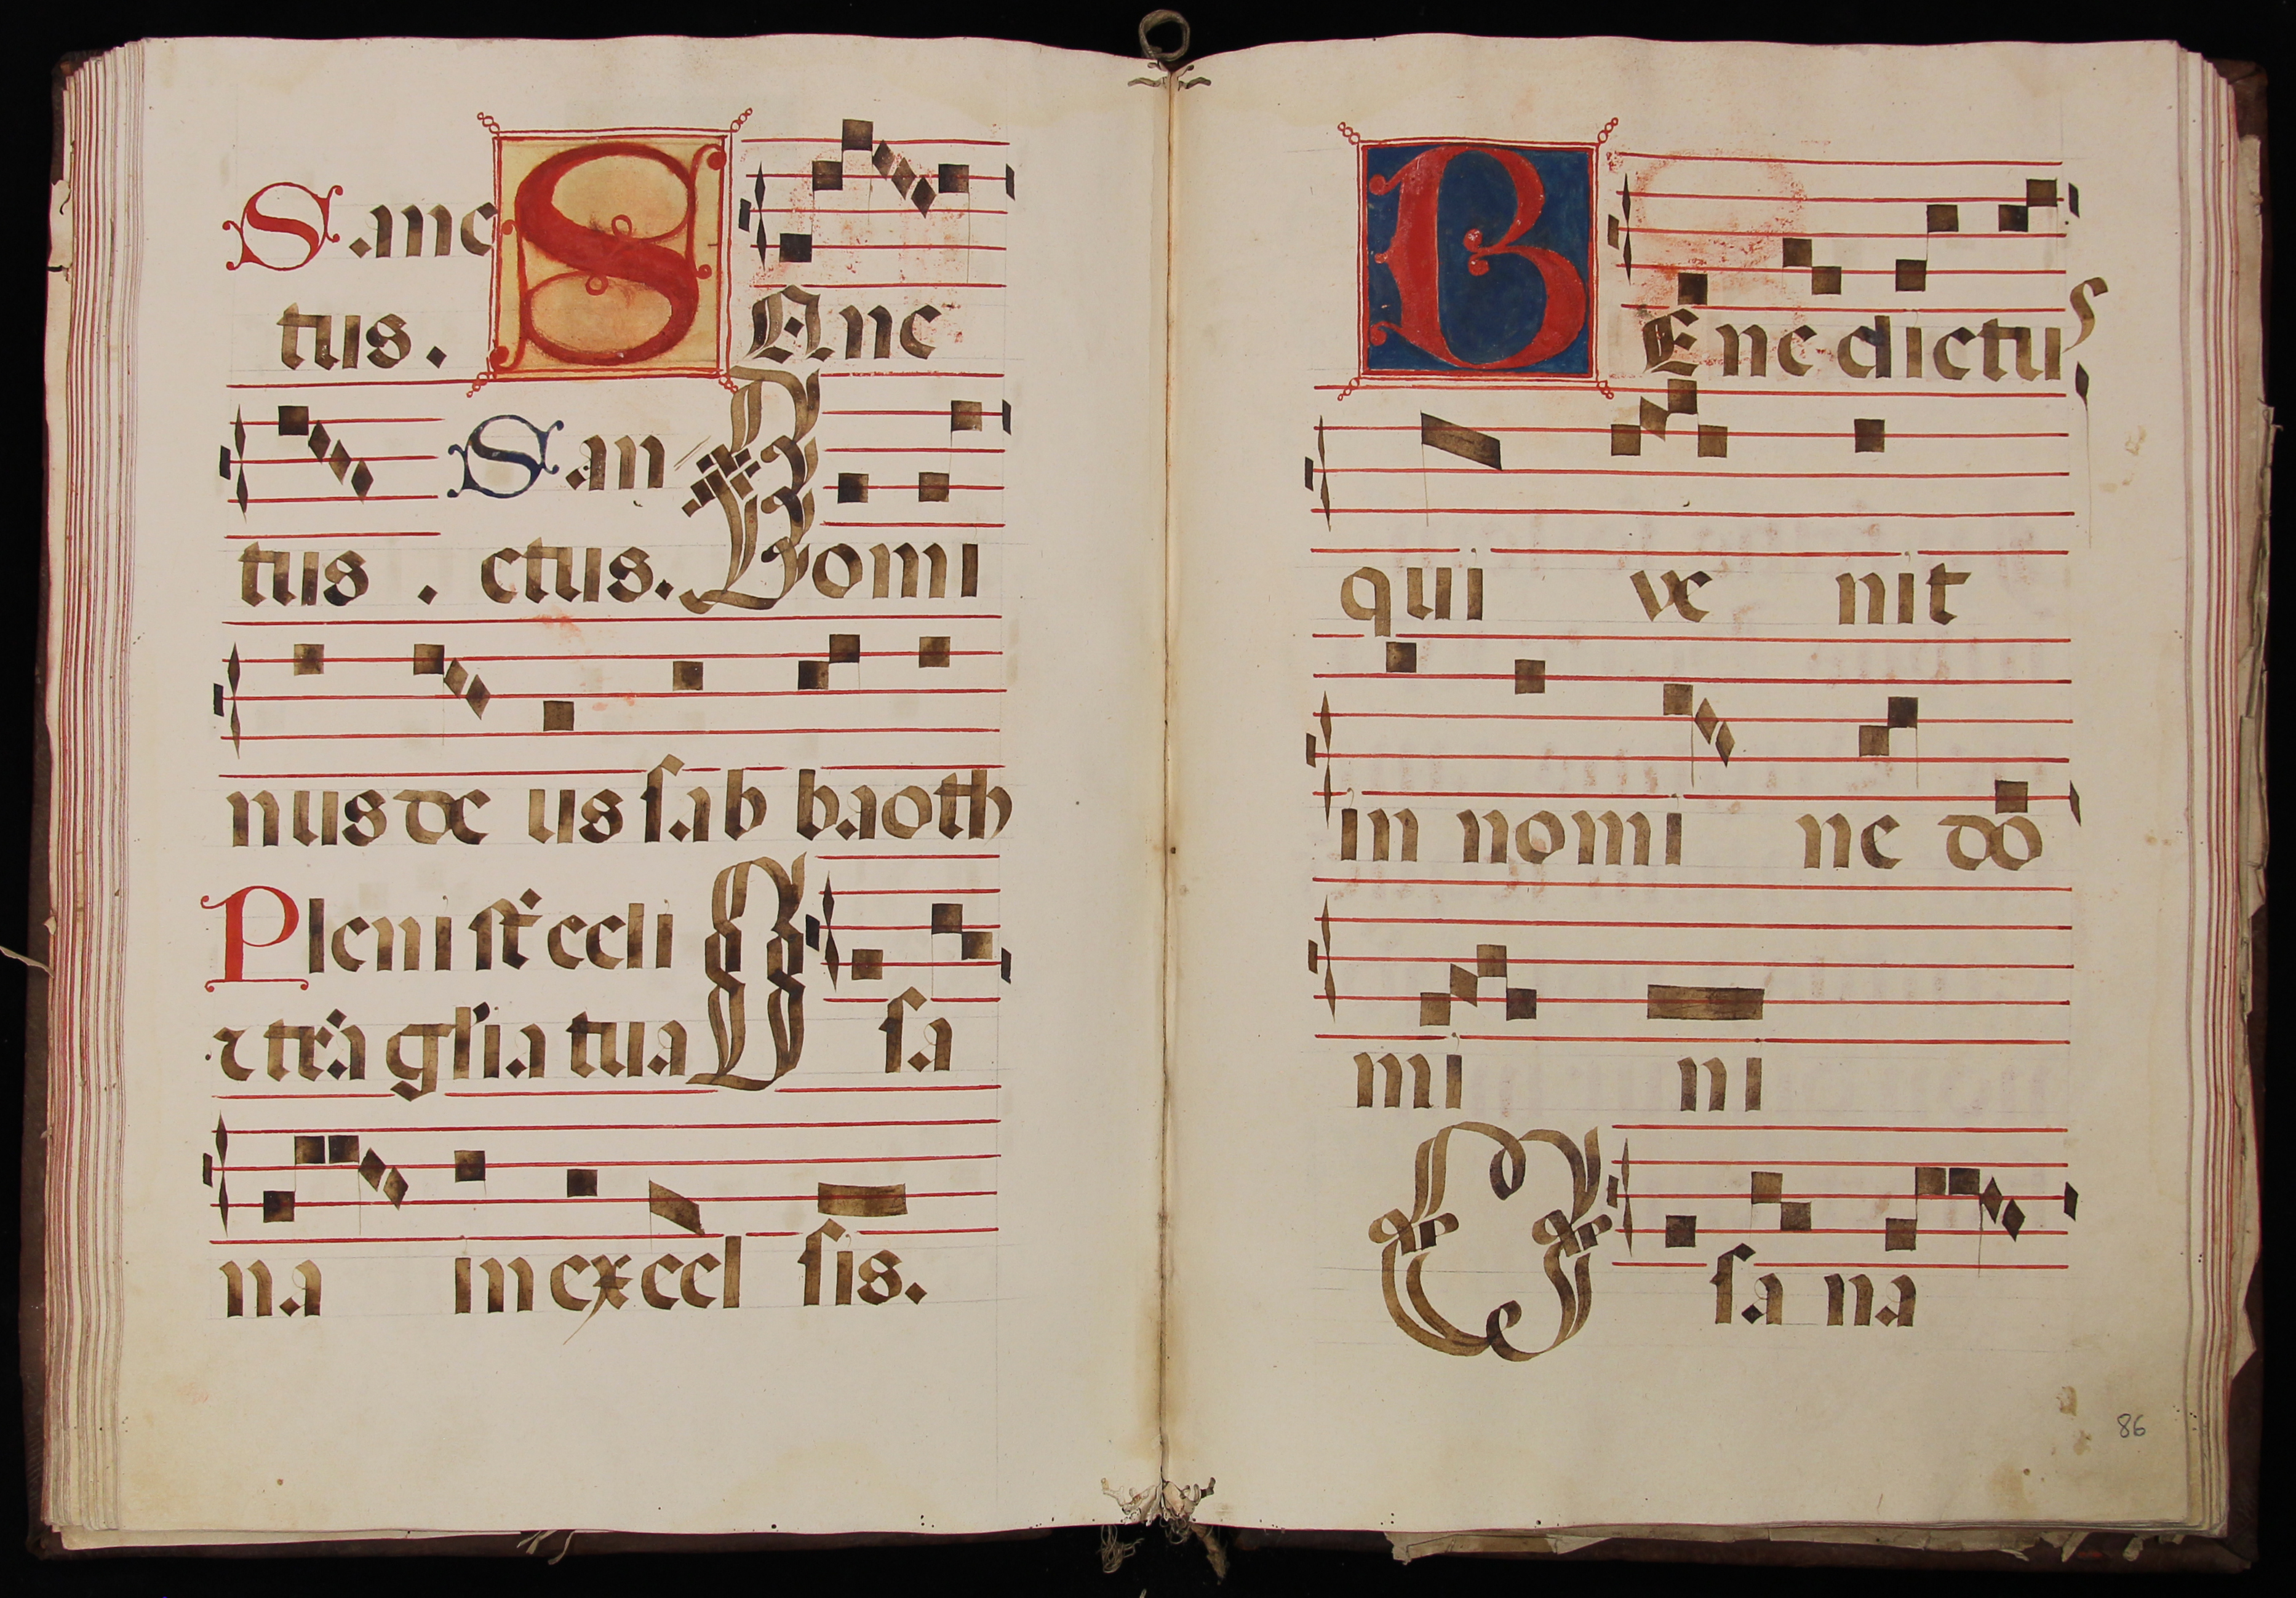 Sanc SAnc
tus.
San
tus . ctus. Domi
nus de us sab baoth
Pleni st̄ celi
⁊ tr̄a gl̄ia tua O sa
na in excel sis.
BEne dictus
qui ve nit
in nomi ne do
mi ni
O sa na
86